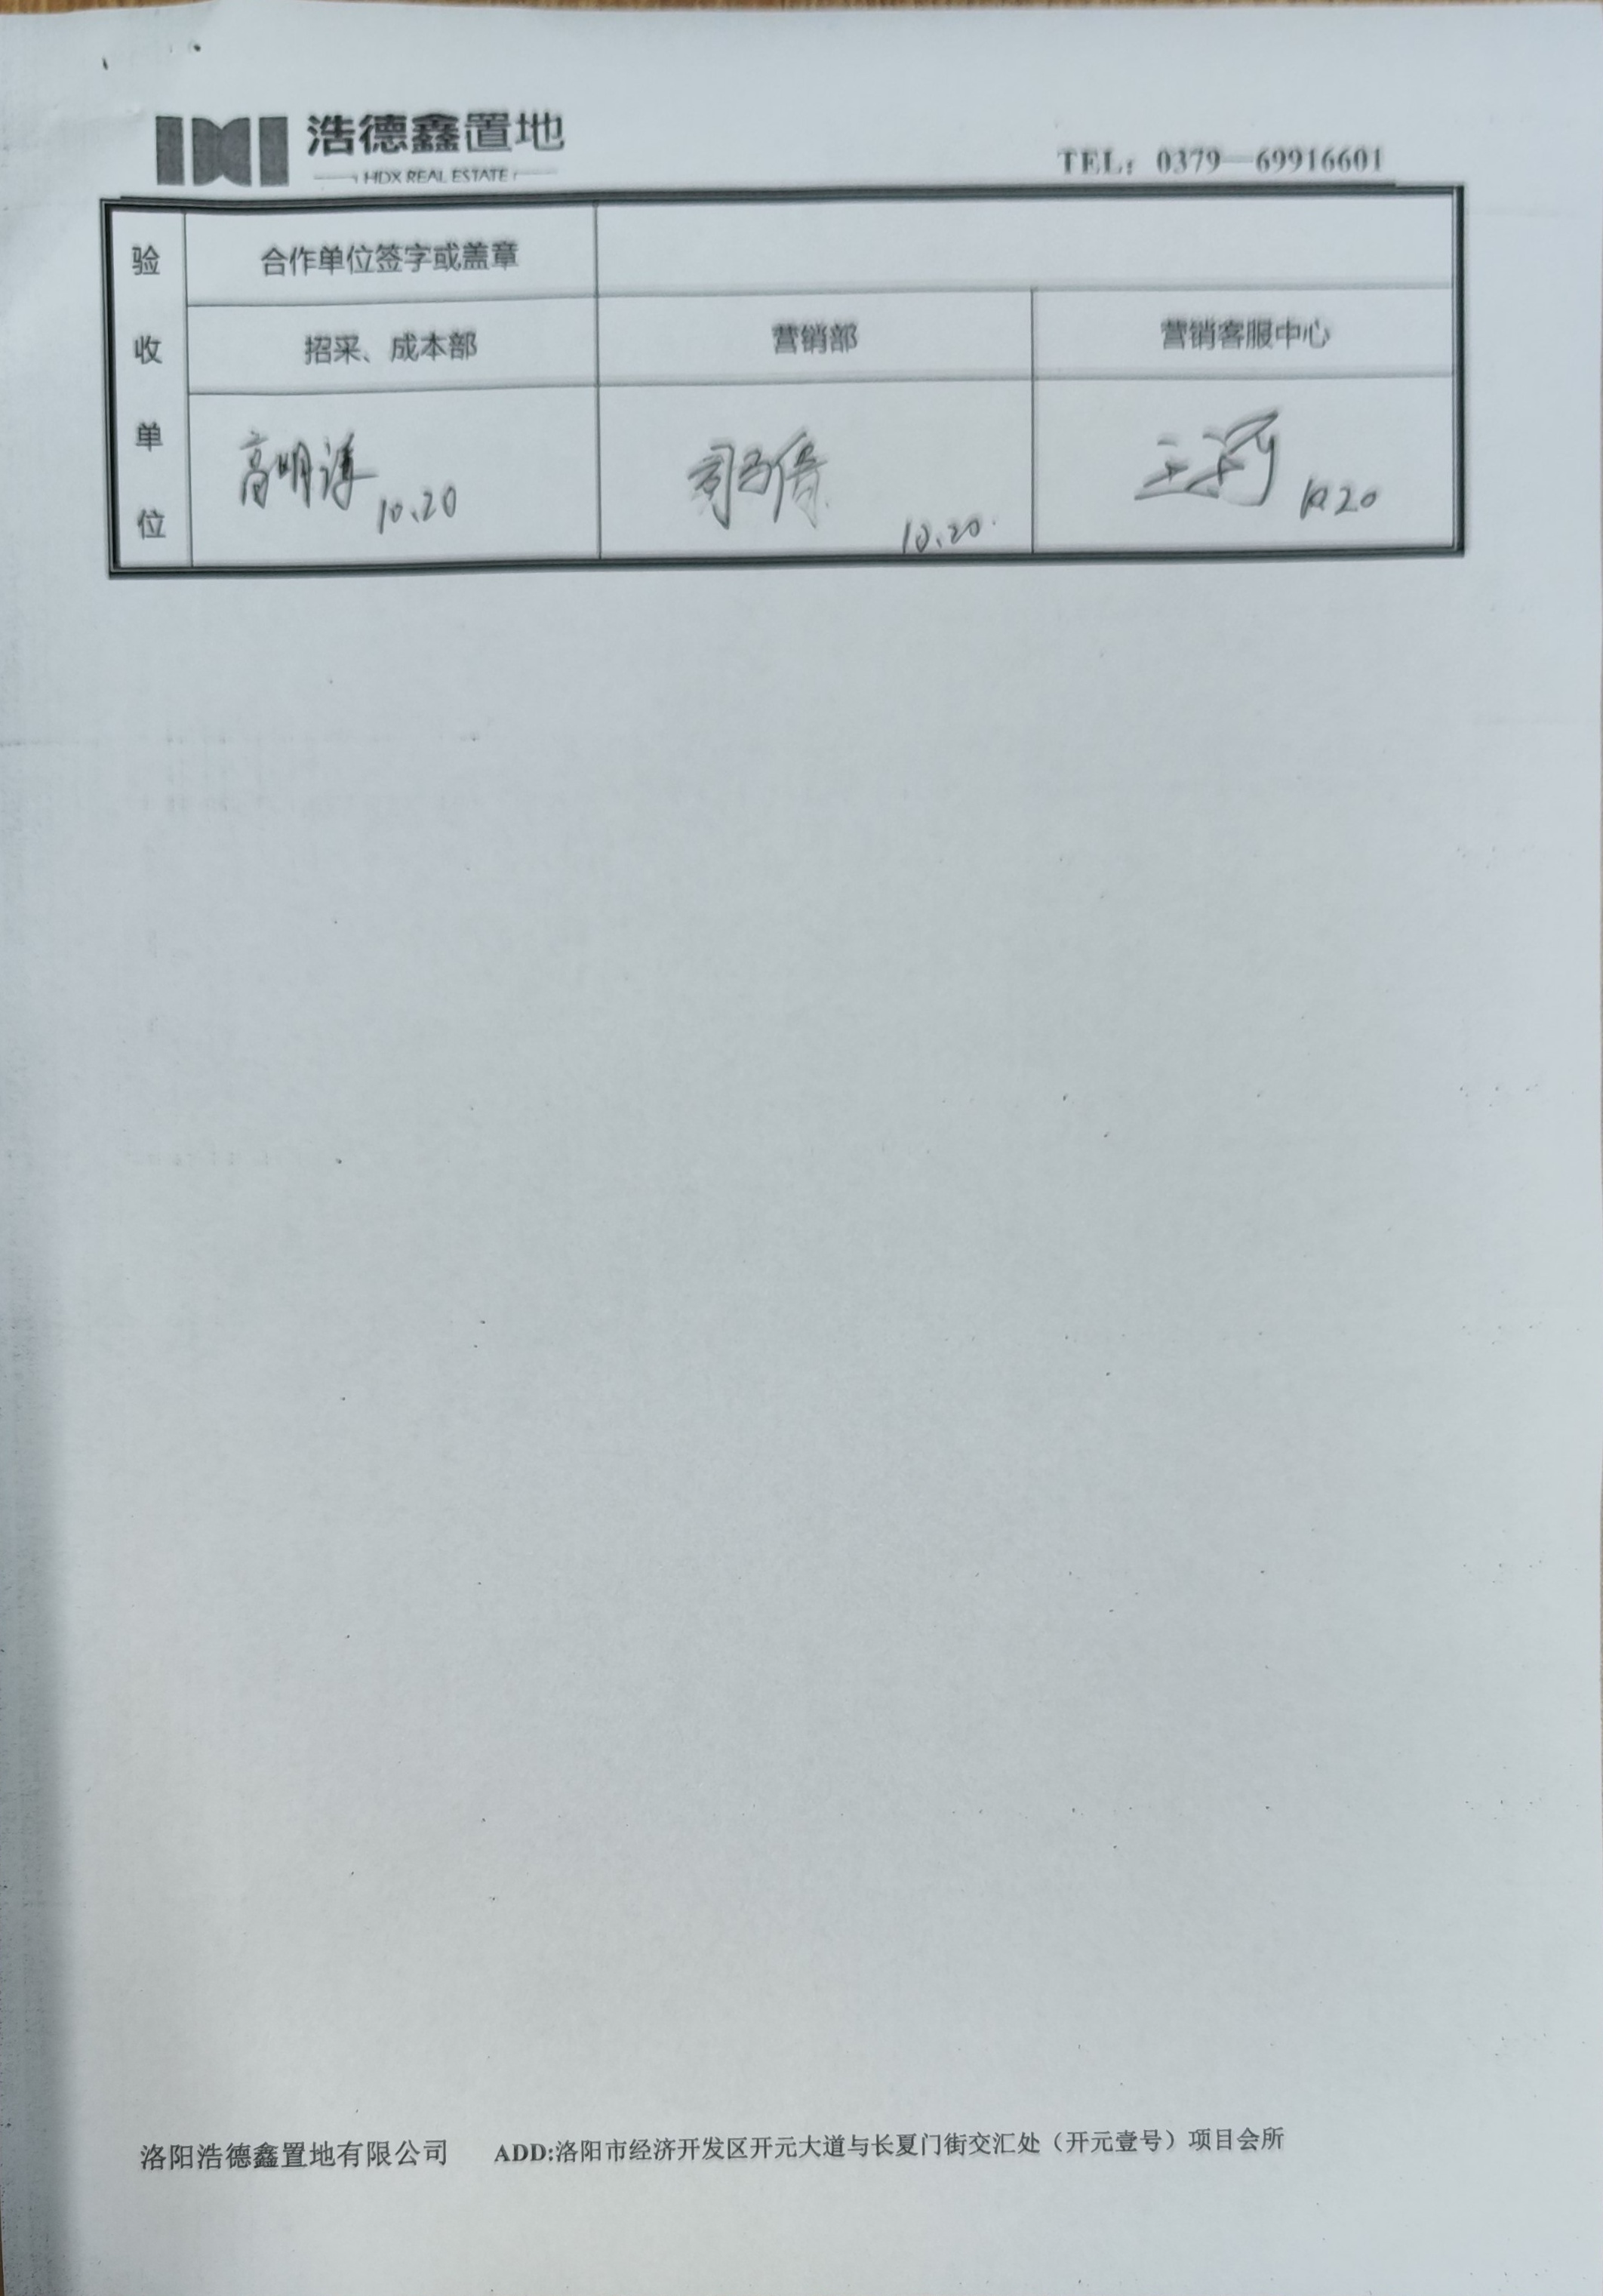 浩德鑫置地
HDX REAL ESTATE
TEL：0379—69916601
验收单位
合作单位签字或盖章
招采、成本部 营销部 营销客服中心
高明 10.20 10.20. 王 10.20
洛阳浩德鑫置地有限公司 ADD:洛阳市经济开发区开元大道与长夏门街交汇处（开元壹号）项目会所